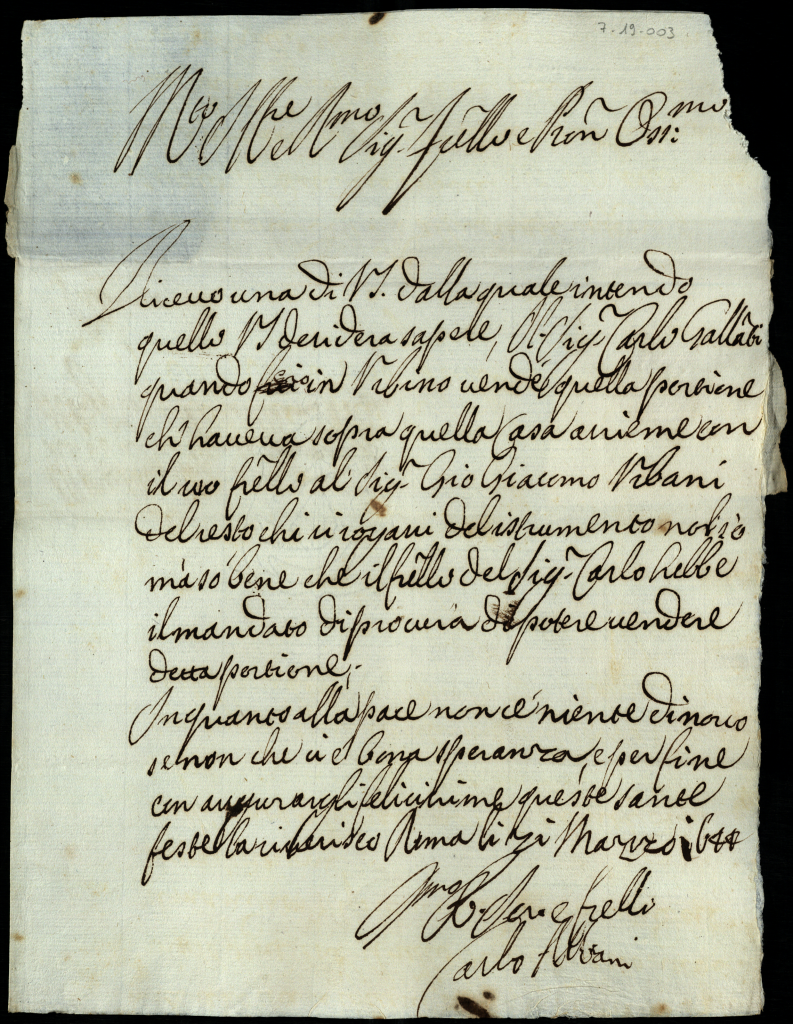 7-19-003
M.to Ill.re e R.mo Sig.r fr̃ello e Pron̄ Oss.mo
Riceuo una di V.S. dalla quale intendo
quello VS desidera sapere, Il Sig.r Carlo Gallãti
quando in Vrbino uendé quella portione
ch'haueua sopra quella Casa assieme con
il suo fr̃ello al Sig.r Gio Giacomo Vrbani
del resto chi si rogassi del istrumento nol sò
mà sò bene che il fr̃ello del Sig.r Carlo hebbe
il mandato di procura di potere uendere
detta portione,-
In quanto alla pace non c'è niente di nouo
se non che ui è bona speranza, e per fine
con augurargli felicissime queste sante
feste la riuerisco Roma li Marzo 1644
Ser. e frello
Carlo Albani